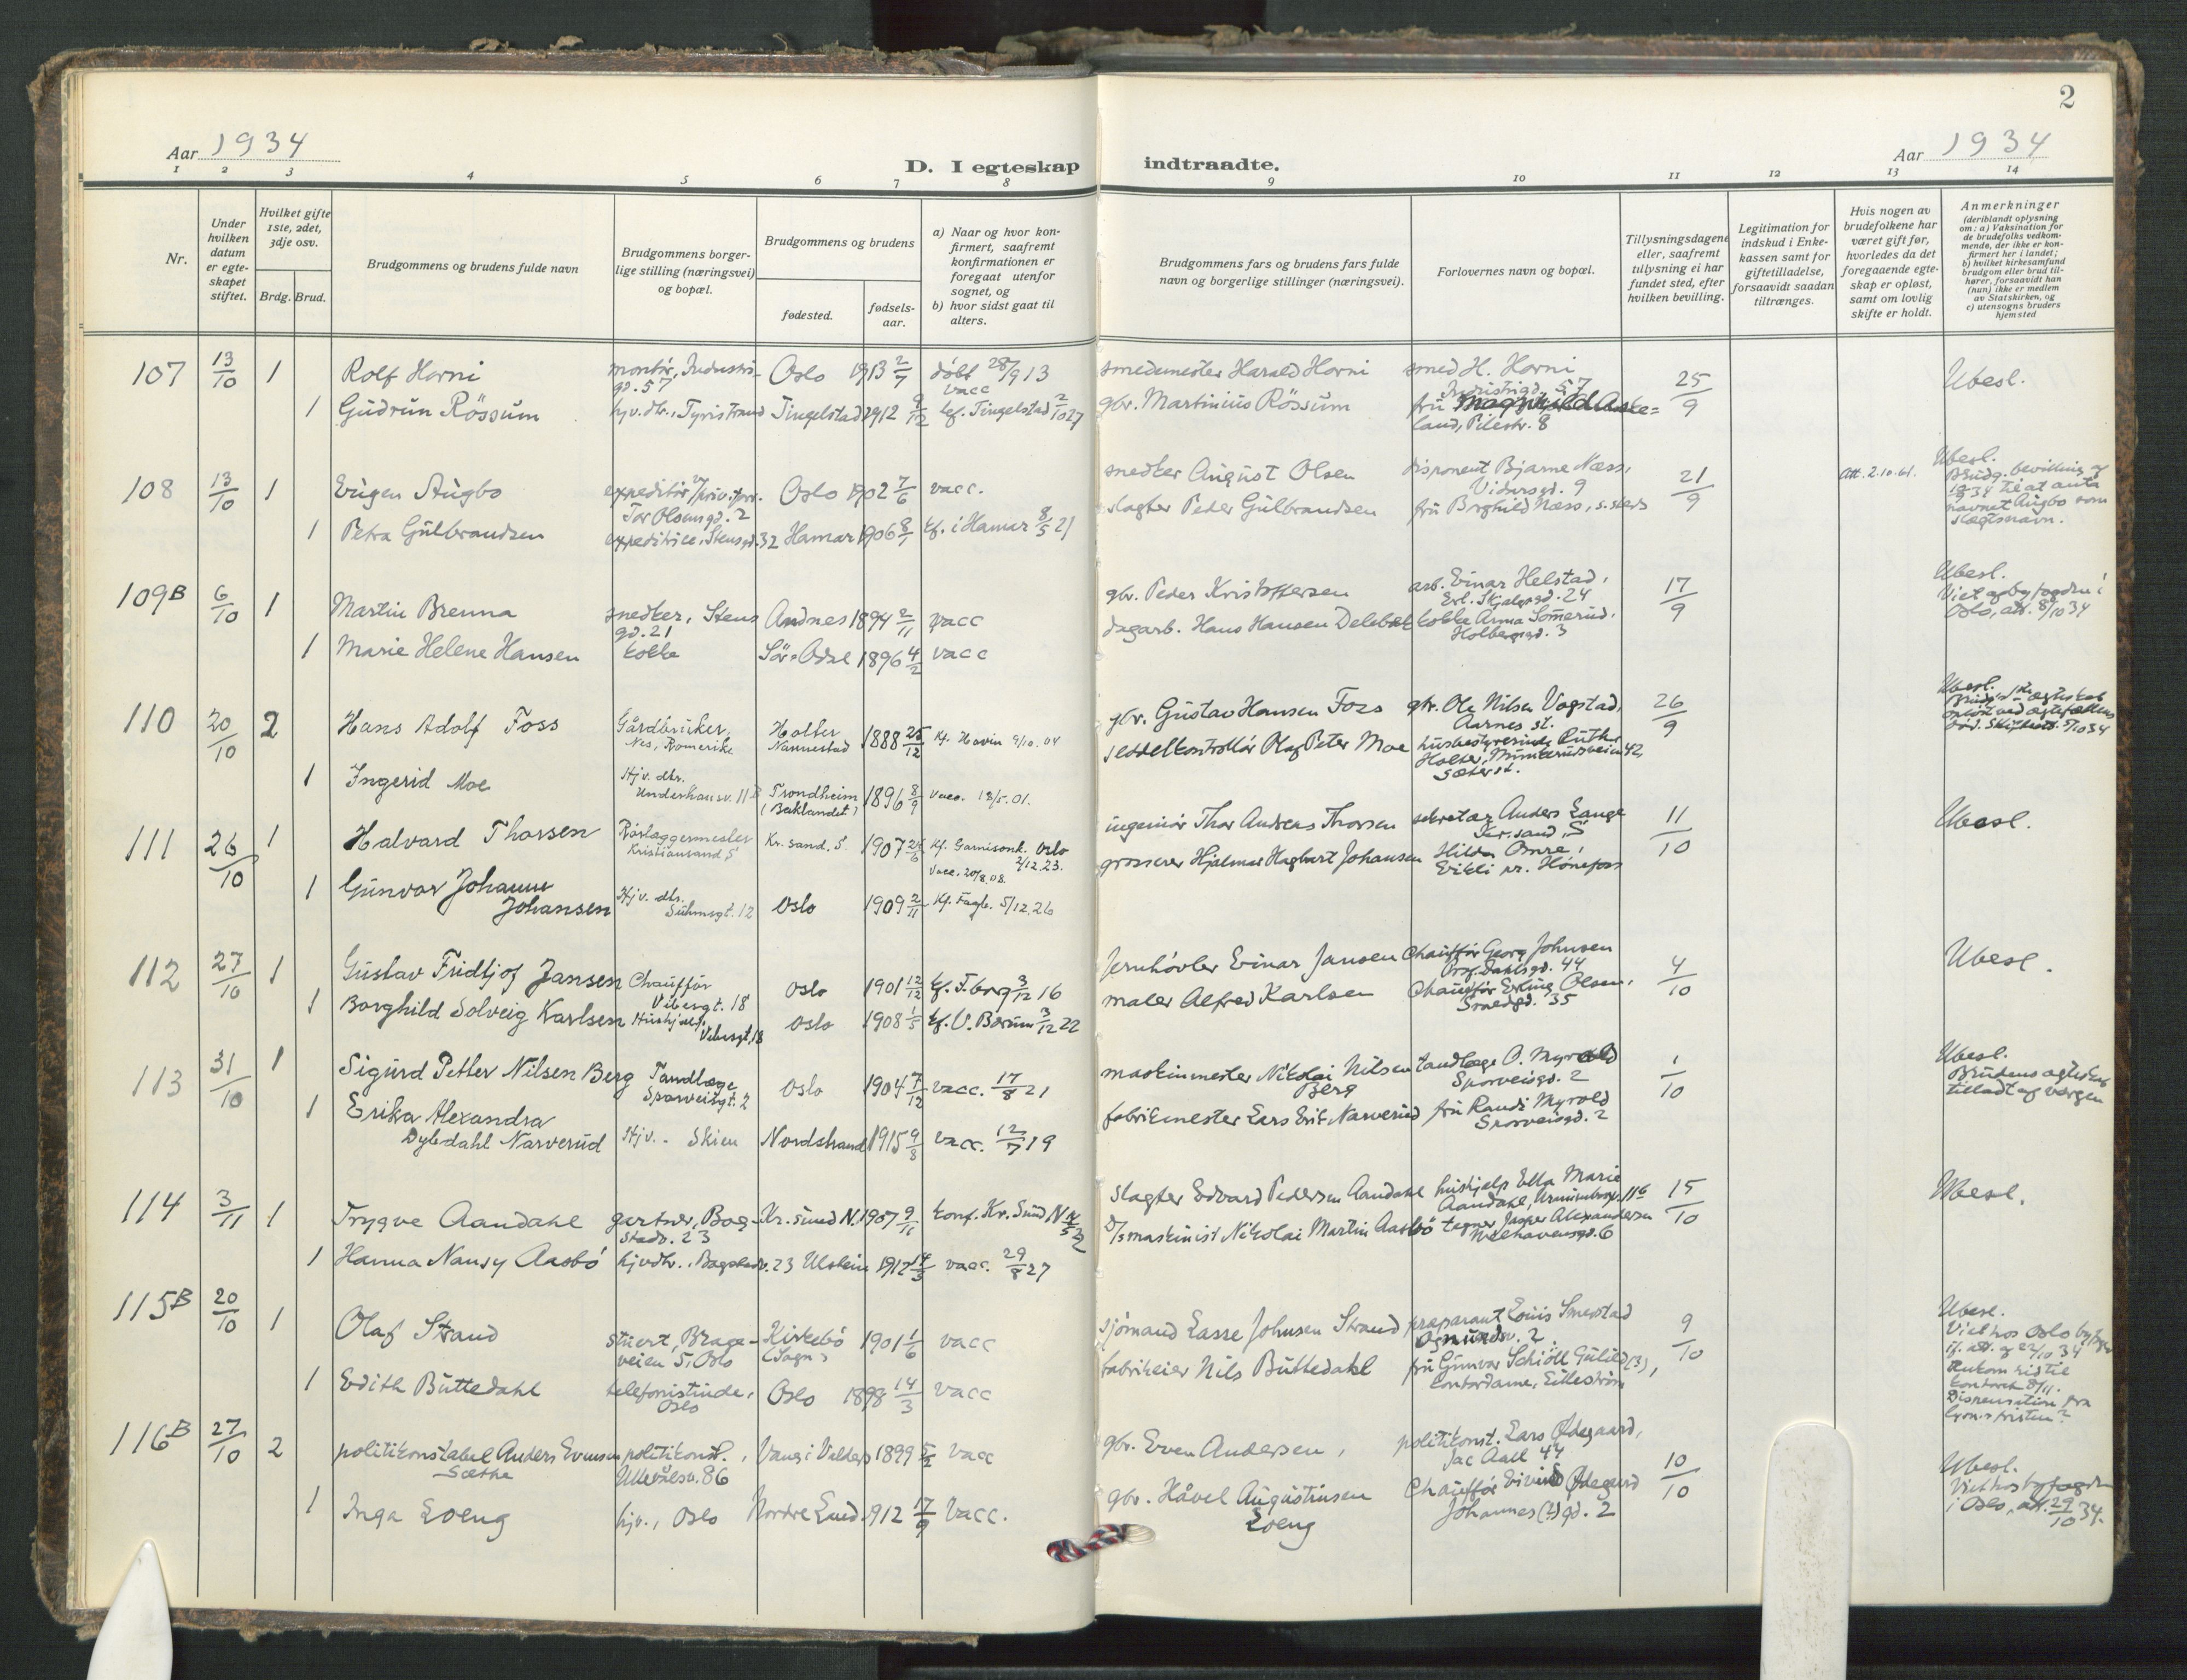 2
Aar 1934
D. I egteskap indtraadte.
Aar 1934
1 2 3 4 5 6 7 8 9 10 11 12 13 14
Nr.
Under hvilken datum er egteskapet stiftet.
Hvilket gifte 1ste, 2det, 3dje osv.
Brdg. Brud.
Brudgommens og brudens fulde navn
Brudgommens borgerlige stilling (næringsvei) og bopæl.
Brudgommens og brudens
fødested.
fødselsaar.
a) Naar og hvor konfirmert, saafremt konfirmationen er foregaat utenfor sognet, og
b) hvor sidst gaat til alters.
Brudgommens fars og brudens fars fulde navn og borgerlige stillinger (næringsvei).
Forlovernes navn og bopæl.
Tillysningsdagene eller, saafremt tillysning ei har fundet sted, efter hvilken bevilling.
Legitimation for indskud i Enkekassen samt for giftetilladelse, forsaavidt saadan tiltrænges.
Hvis nogen av brudefolkene har været gift før, hvorledes da det foregaaende egteskap er opløst, samt om lovlig skifte er holdt.
Anmerkninger (deriblandt oplysning om: a) Vaksination for de brudefolks vedkommende, der ikke er konfirmert her i landet; b) hvilket kirkesamfund brudgom eller brud tilhører, forsaavidt han (hun) ikke er medlem av Statskirken, og c) utensogns bruders hjemsted
107 13/10 1 Rolf Horni montør, Industrigd. 57 Oslo 1913 2/7 døbt 28/9 13 vacc smedmester Harald Horni smed H. Horni Industrigd. 57 25/9 Ubesl.
1 Gudrun Røssum hjv. dtr., Tyristrand Tingelstad 1912 9/12 kf. Tingelstad 2/10 27 gbr. Martinius Røssum fru Magnhild Askeland, Pilestr. 8
108 13/10 1 Eugen Augbo expeditør Tor Olsensgd. 2 Oslo 1902 7/6 vacc. snedker August Olsen disponent Bjarne Næss, Vidarsgd. 9 21/9 Att. 2.10.61. Ubesl. Brudg. bevilling af til at anta navnet Augbo som slægtsnavn.
1 Petra Gulbrandsen expeditrice, Stensgd. 32 Hamar 1906 8/1 kf. i Hamar 8/5 21 slagter Peder Gulbrandsen fru Borghild Næss, s. steds
109B 6/10 1 Martin Brenna snedker, Stensgd. 21 Andnes 1894 2/11 vacc gbr. Peder Kristoffersen arb. Einar Helstad, Erl. Skjalgsgd. 24 17/9 Ubesl. Viet af byfogden i Oslo, att. 8/10 34
1 Marie Helene Hansen kokke Sør-Odal 1896 4/2 vacc dagarb. Hans Hansen Delebæk kokke Anna Sømerud, Holbergsgd. 3
110 20/10 2 Hans Adolf Foss Gårdbruker, Nes, Romerike Holter Nannestad 1888 25/12 Kf. Hovin 9/10.04 gbr. Gustav Hansen Foss gbr. Ole Nilsen Vogstad, Aarnes st. 26/9 Ubesl.
1 Ingerid Moe Hjv. dtr. Underhausv. 11B Trondheim (Baklandet) 1896 8/9 Vacc. 18/5.01. seddelkontrollør Olaf Peter Moe husbestyrerinde Ruth Holter, Munkerudveien 42, Sæter st.
111 26/10 1 Halvard Thorsen Rørlæggermester Kristiansand S Kr. sand. S 1907 Kf. Garnisonk. Oslo 2/12.23. Vacc. 20/8.08. ingeniør Thor Andreas Thorsen sekretær Anders Lange Kr. sand S 11/10 Ubesl.
1 Gunvor Johanne Johansen Hjv. dtr. Suhmsgt. 12 Oslo 1909 2/11 Kf. Fagb. 5/12.26 grosserer Hjalmar Hagbart Johansen Hilda Omre, Eikli pr. Hønefoss
112 27/10 1 Gustav Fridtjof Jansen Chauffør Vibesgt. 18 Oslo 1901 12/12 kf. T.berg 3/12 16 Jernhøvler Einar Jansen Chauffør Georg Johnsen Prof. Dahlsgd. 44 4/10 Ubesl.
1 Borghild Solveig Karlsen Hushjelp, Vibesgt. 18 Oslo 1908 1/5 kf. V. Bærum 3/12 22 maler Alfred Karlsen Chauffør Erling Olsen, Smedgd. 35
113 31/10 1 Sigurd Petter Nilsen Berg Tandlæge Sporveisgt. 2 Oslo 1904 7/12 vacc. 17/8 21 maskinmester Nikolai Nilsen Berg tandlæge O. Myrold Sporveisgd. 2 1/10 Ubesl. Brudens egteskap tilladt af vergen
1 Erika Alexandra Dybdahl Narverud Hjv. - Skien Nordstrand 1915 9/8 vacc. 12/7 19 fabrikmester Lars Erik Narverud fru Randi Myrold Sporveisgd. 2
114 3/11 1 Trygve Aandahl gartner, Bogstadv. 23 Kr. sund N. 1907 9/11 konf. Kr. Sund N slagter Edvard Pedersen Aandahl hushjelp Ella Marie Aandahl 15/10 Ubesl.
1 Hanna Nansy Aasbø hjvdtr., Bogstadv. 23 Ulstein 1912 14/3 vacc. 29/8 27 D/s maskinist Nikolai Martin Aasbø tegner Jasper Alexandersen Welhavensgd. 6
115B 20/10 1 Olaf Strand stuert, Brageveien 5, Oslo Kirkebø (Sogn) 1901 1/6 vacc sjømand Lasse Johnsen Strand præparant Louis Smestad 9/10 Ubesl. Viet hos Oslo byfoged if. att. af 22/10 34 Ankom hid til kontoret 8/11. Dispensation fra lysn.sfristen?
1 Edith Buttedahl telefonistinde, Oslo Oslo 1898 14/3 vacc fabrikeier Nils Buttedahl fru Gunvor Schiøll Gulild (?), kontordame, Lillestrøm
116B 27/10 2 politikonstabel Anders Evensen Sæthe politikonst., Ullevålsv. 86 Vang i Valdres 1899 5/2 vacc gbr. Even Andersen, politikonst. Lars Ødegaard, Jac Aall 44 10/10 Ubesl. Viet hos byfogden i Oslo, att. 29/10 34.
1 Inga Loeng hjv., Oslo Nordre Land 1912 17/9 Vacc. gbr. Håvel Augustinsen Loeng Chauffør Eivind Ødegård Johannes (?) gd. 2